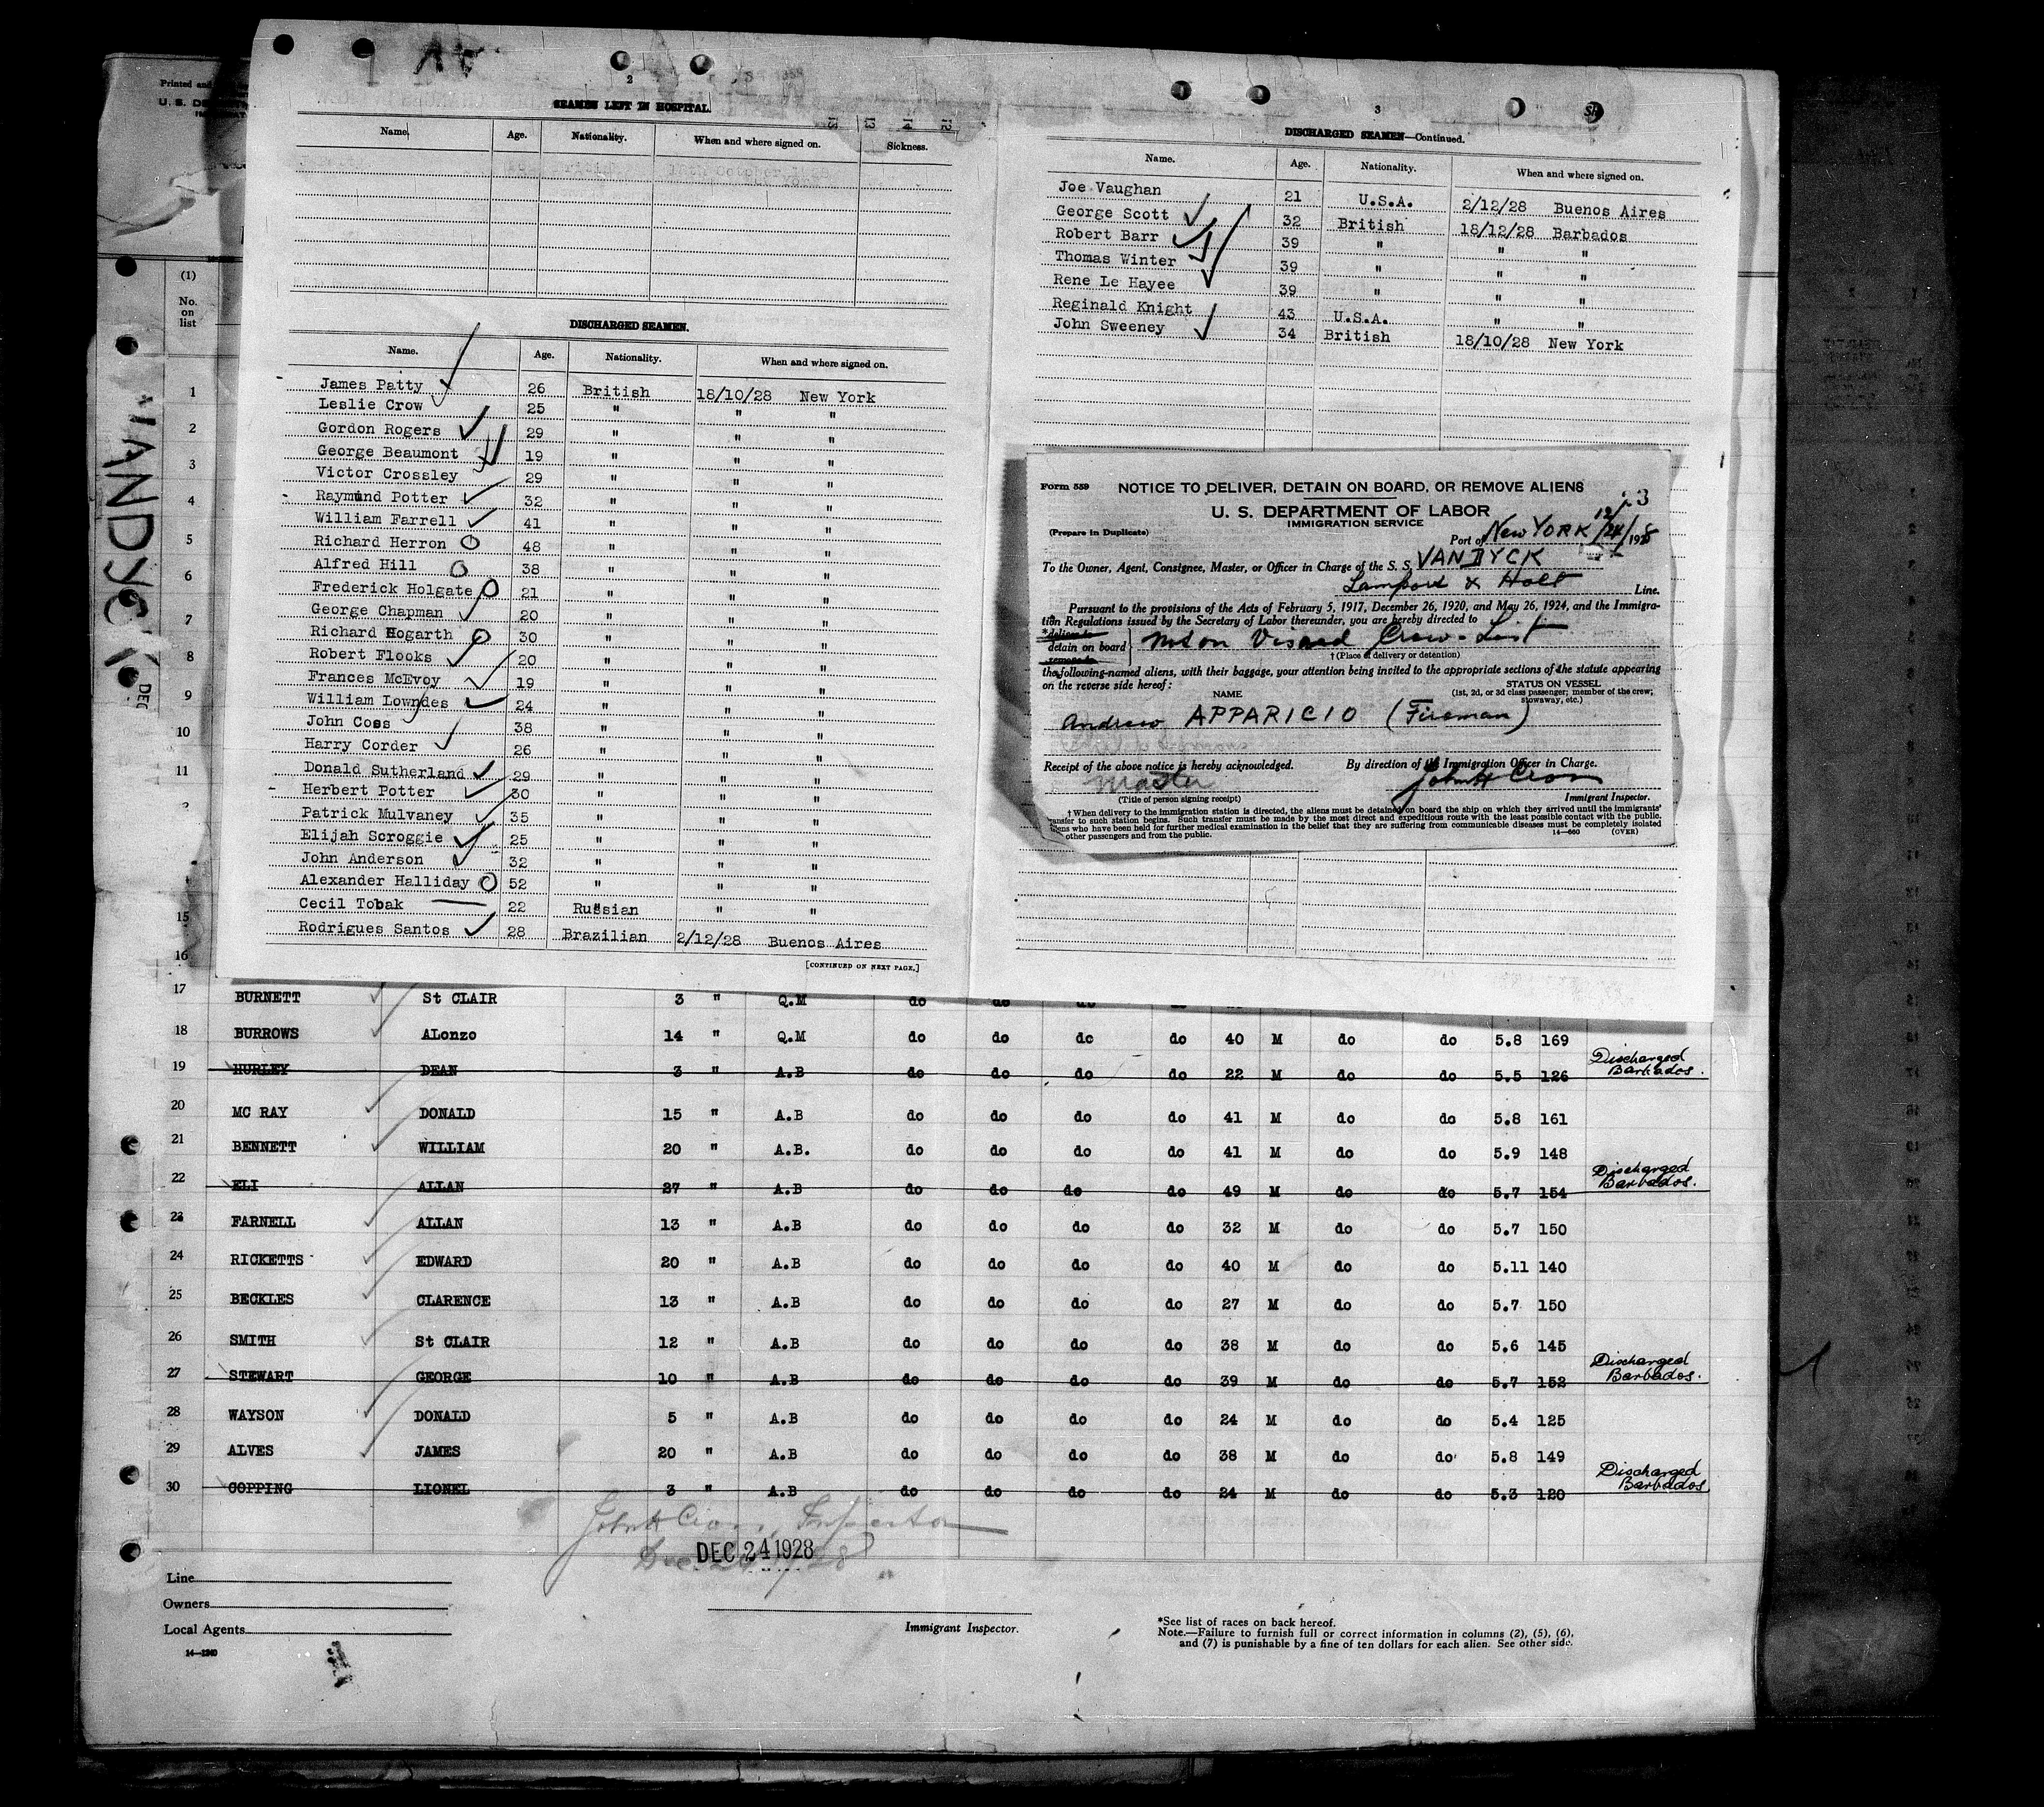 Printed and
U. S. DE
(1)
No.
on
list
VANDYCK
DEC
2
SEAMEN LEFT IN HOSPITAL.
Name. Age. Nationality. When and where signed on. Sickness.
DISCHARGED SEAMEN.
Name. Age. Nationality. When and where signed on.
James Patty 26 British 18/10/28 New York
Leslie Crow 25 " " "
Gordon Rogers 29 " " "
George Beaumont 19 " " "
Victor Crossley 29 " " "
Raymund Potter 32 " " "
William Farrell 41 " " "
Richard Herron 48 " " "
Alfred Hill 38 " " "
Frederick Holgate 21 " " "
George Chapman 20 " " "
Richard Hogarth 30 " " "
Robert Flooks 20 " " "
Frances McEvoy 19 " " "
William Lowndes 24 " " "
John Coss 38 " " "
Harry Corder 26 " " "
Donald Sutherland 29 " " "
Herbert Potter 30 " " "
Patrick Mulvaney 35 " " "
Elijah Scroggie 25 " " "
John Anderson 32 " " "
Alexander Halliday 52 " " "
Cecil Tobak 22 Russian " "
Rodrigues Santos 28 Brazilian 2/12/28 Buenos Aires
[CONTINUED ON NEXT PAGE.]
3
DISCHARGED SEAMEN—Continued.
Name. Age. Nationality. When and where signed on.
Joe Vaughan 21 U.S.A. 2/12/28 Buenos Aires
George Scott 32 British 18/12/28 Barbados
Robert Barr 39 " " "
Thomas Winter 39 " " "
Rene Le Hayee 39 " " "
Reginald Knight 43 U.S.A. " "
John Sweeney 34 British 18/10/28 New York
Form 559
NOTICE TO DELIVER, DETAIN ON BOARD, OR REMOVE ALIENS
U. S. DEPARTMENT OF LABOR
IMMIGRATION SERVICE
(Prepare in Duplicate)
Port of New YORK 12/24/1928
To the Owner, Agent, Consignee, Master, or Officer in Charge of the S. S. VANDYCK
Lamport & Holt Line.
Pursuant to the provisions of the Acts of February 5, 1917, December 26, 1920, and May 26, 1924, and the Immigra-
tion Regulations issued by the Secretary of Labor thereunder, you are hereby directed to
*deliver to
detain on board
remove to
not on Visaed Crew-List
† (Place of delivery or detention)
the following-named aliens, with their baggage, your attention being invited to the appropriate sections of the statute appearing
on the reverse side hereof:
NAME
STATUS ON VESSEL
(1st, 2d, or 3d class passenger; member of the crew;
stowaway, etc.)
Andrew APPARICIO (Fireman)
Receipt of the above notice is hereby acknowledged.
By direction of the Immigration Officer in Charge.
Master
(Title of person signing receipt)
John H Cron
Immigrant Inspector.
† When delivery to the immigration station is directed, the aliens must be detained on board the ship on which they arrived until the immigrants'
transfer to such station begins. Such transfer must be made by the most direct and expeditious route with the least possible contact with the public.
Aliens who have been held for further medical examination in the belief that they are suffering from communicable diseases must be completely isolated
other passengers and from the public.
14—660 (OVER)
1
2
3
4
5
6
7
8
9
10
11
15
16
17 BURNETT St CLAIR 3 " Q.M do do do
18 BURROWS ALonzo 14 " Q.M do do do do 40 M do do 5.8 169
19 HURLEY DEAN 3 " A.B do do do do 22 M do do 5.5 126 Discharged Barbados.
20 MC RAY DONALD 15 " A.B do do do do 41 M do do 5.8 161
21 BENNETT WILLIAM 20 " A.B. do do do do 41 M do do 5.9 148
22 ELI ALLAN 27 " A.B do do do do 49 M do do 5.7 154 Discharged Barbados.
23 FARNELL ALLAN 13 " A.B do do do do 32 M do do 5.7 150
24 RICKETTS EDWARD 20 " A.B do do do do 40 M do do 5.11 140
25 BECKLES CLARENCE 13 " A.B do do do do 27 M do do 5.7 150
26 SMITH St CLAIR 12 " A.B do do do do 38 M do do 5.6 145
27 STEWART GEORGE 10 " A.B do do do do 39 M do do 5.7 152 Discharged Barbados.
28 WAYSON DONALD 5 " A.B do do do do 24 M do do 5.4 125
29 ALVES JAMES 20 " A.B do do do do 38 M do do 5.8 149
30 COPPING LIONEL 3 " A.B do do do do 24 M do do 5.3 120 Discharged Barbados
John H Cron, Inspector
DEC 24 1928
Line
Owners
Local Agents
14—1240
Immigrant Inspector.
*See list of races on back hereof.
Note.—Failure to furnish full or correct information in columns (2), (5), (6),
and (7) is punishable by a fine of ten dollars for each alien. See other side.